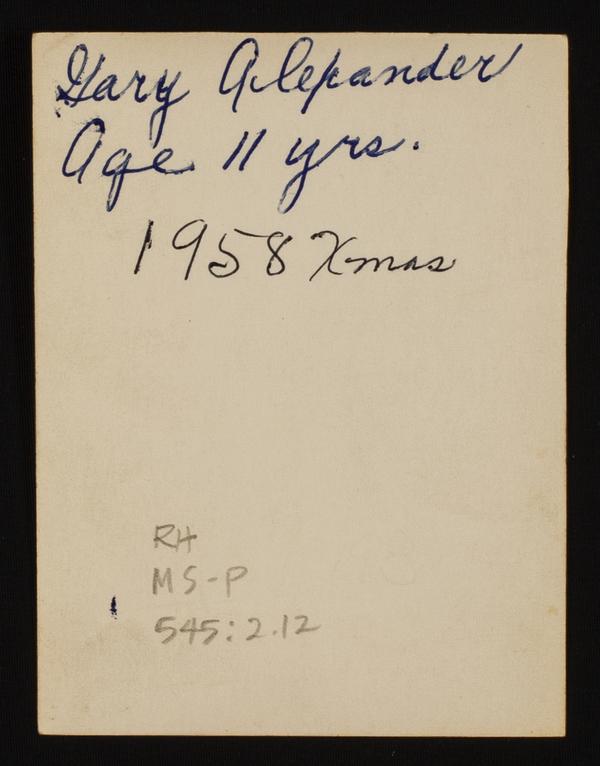 Gary Alexander
Age 11 yrs.
1958 Xmas
RH
MS-P
545:2.12